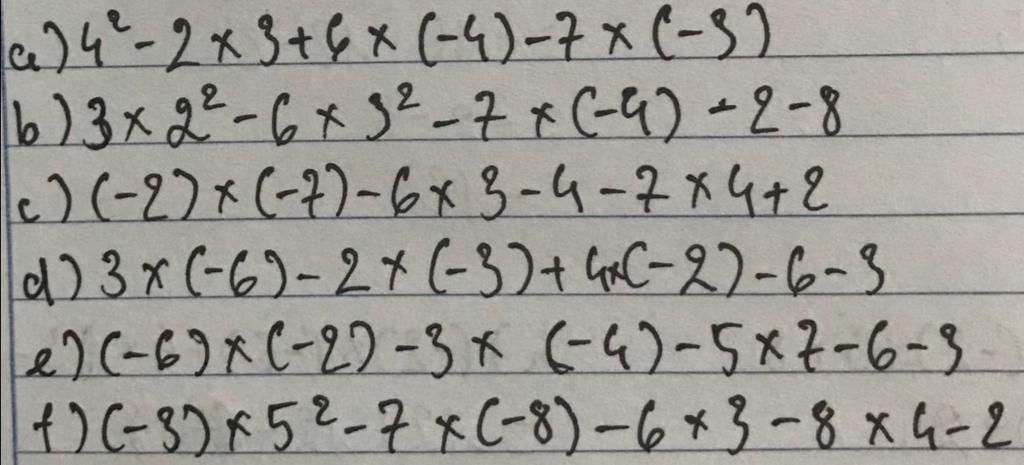 a) 4² - 2 × 3 + 6 × (-4) - 7 × (-3)
b) 3 × 2² - 6 × 3² - 7 × (-4) - 2 - 8
c) (-2) × (-7) - 6 × 3 - 4 - 7 × 4 + 2
d) 3 × (-6) - 2 × (-3) + 4×(-2) - 6 - 3
e) (-6) × (-2) - 3 × (-4) - 5 × 7 - 6 - 3
f) (-3) × 5² - 7 × (-8) - 6 × 3 - 8 × 4 - 2